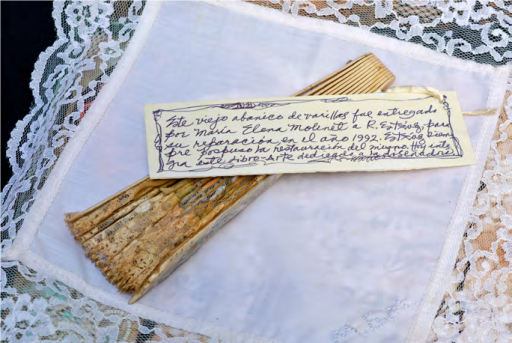 Este viejo abanico de varillas fue entregado
por María Elena Molinet a R. Estévez, para
su reparación en el año 1992. Estévez siem
pre pospuso la restauración del mismo. Hoy inte
gra este libro-Arte dedicado a la diseñadora